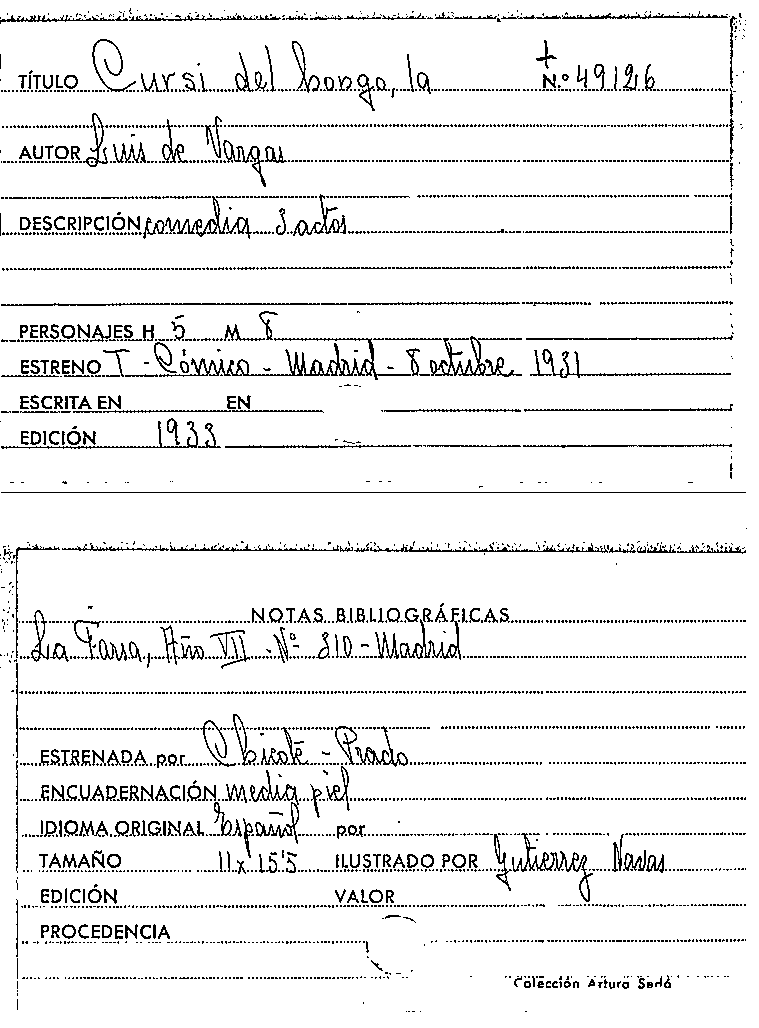 TÍTULO Cursi del hongo, la N.º 49126
AUTOR Luis de Vargas
DESCRIPCIÓN comedia 3 actos
PERSONAJES H 5 M 8
ESTRENO T - Cómico - Madrid - 8 octubre 1931
ESCRITA EN EN
EDICIÓN 1933
NOTAS BIBLIOGRÁFICAS
La Farsa, Año VII - Nº 310 - Madrid
ESTRENADA por Chicote - Prado
ENCUADERNACIÓN media piel
IDIOMA ORIGINAL Español por
TAMAÑO 11 x 15'5 ILUSTRADO POR Gutierrez Navas
EDICIÓN VALOR
PROCEDENCIA
Colección Arturo Sedó